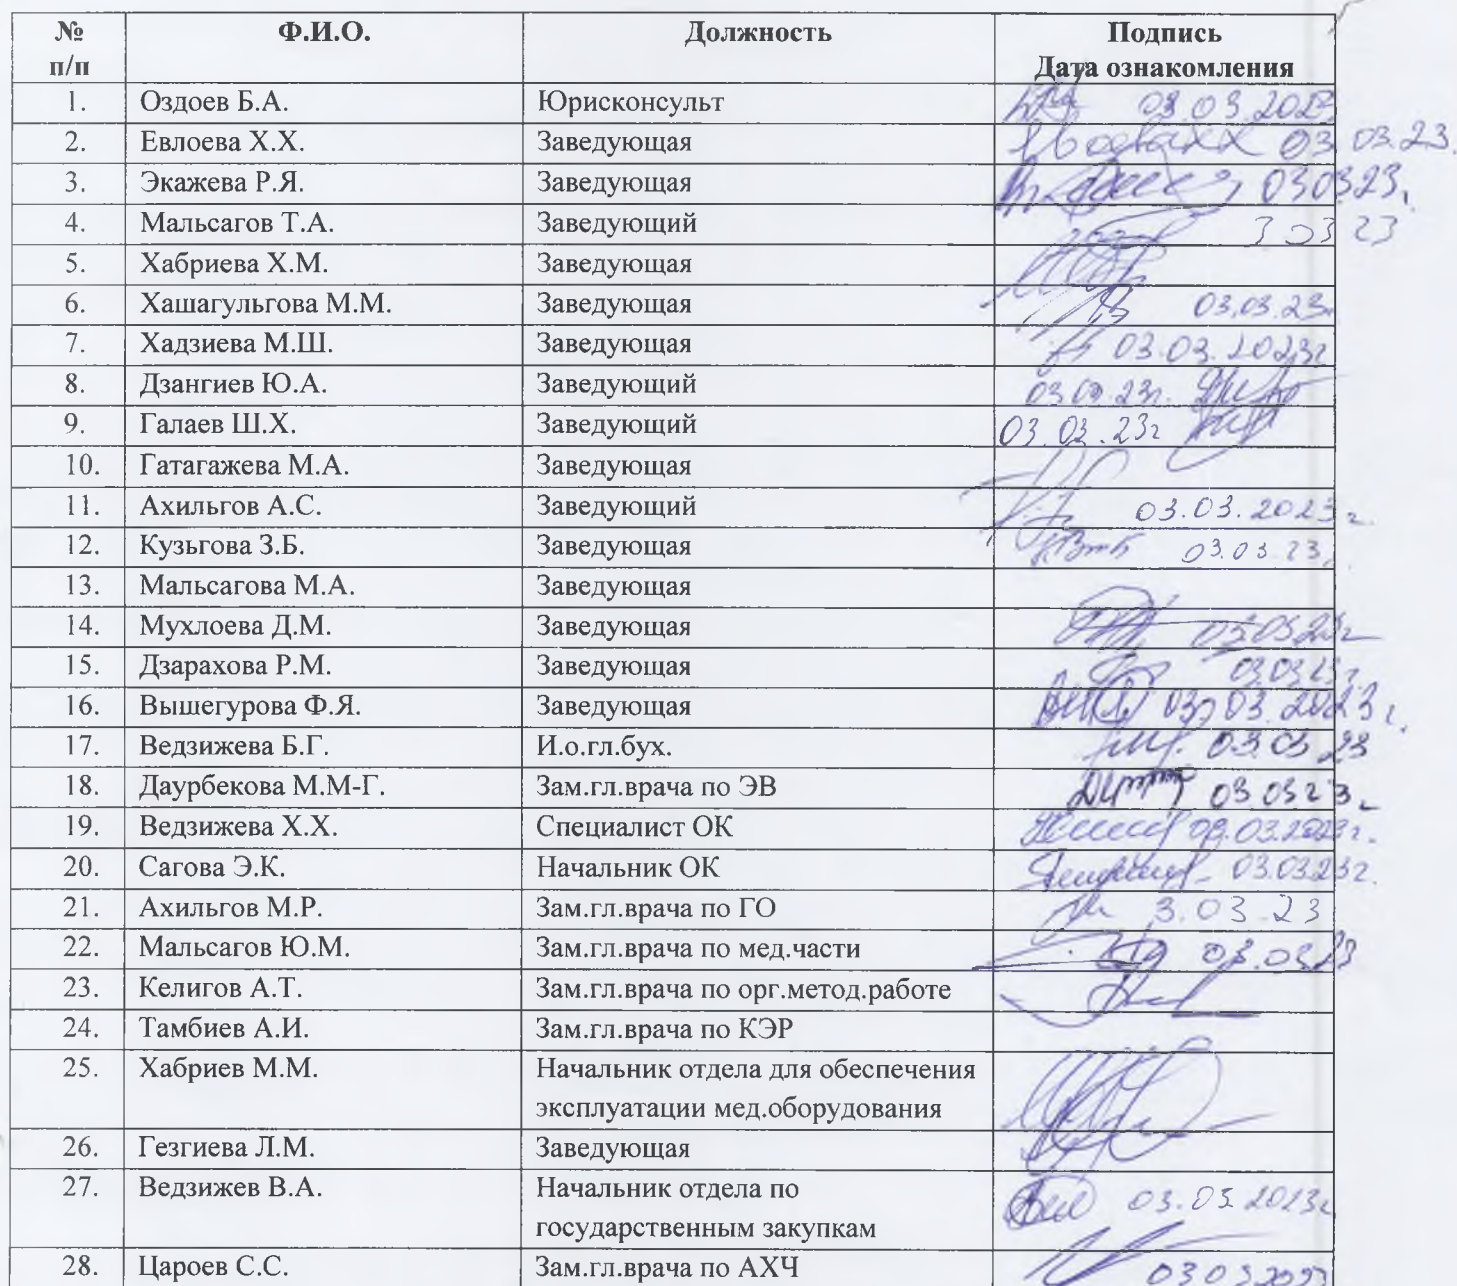 № п/п Ф.И.О. Должность Подпись Дата ознакомления
1. Оздоев Б.А. Юрисконсульт 03.03.2023
2. Евлоева Х.Х. Заведующая 03.03.23.
3. Экажева Р.Я. Заведующая 030323г.
4. Мальсагов Т.А. Заведующий 3 03 23
5. Хабриева Х.М. Заведующая
6. Хашагульгова М.М. Заведующая 03.03.23г
7. Хадзиева М.Ш. Заведующая 03.03.2023г
8. Дзангиев Ю.А. Заведующий 03.03.23г.
9. Галаев Ш.Х. Заведующий 03.03.23г
10. Гатагажева М.А. Заведующая
11. Ахильгов А.С. Заведующий 03.03.2023г.
12. Кузьгова З.Б. Заведующая 03.03.23г
13. Мальсагова М.А. Заведующая
14. Мухлоева Д.М. Заведующая 03.03.23г
15. Дзарахова Р.М. Заведующая 03.03.23г
16. Вышегурова Ф.Я. Заведующая 03.03.2023г.
17. Ведзижева Б.Г. И.о.гл.бух. 03.03.23
18. Даурбекова М.М-Г. Зам.гл.врача по ЭВ 03.03.23г
19. Ведзижева Х.Х. Специалист ОК 03.03.2023г.
20. Сагова Э.К. Начальник ОК 03.03.23г.
21. Ахильгов М.Р. Зам.гл.врача по ГО 3.03.23
22. Мальсагов Ю.М. Зам.гл.врача по мед.части 03.03.23
23. Келигов А.Т. Зам.гл.врача по орг.метод.работе
24. Тамбиев А.И. Зам.гл.врача по КЭР
25. Хабриев М.М. Начальник отдела для обеспечения
эксплуатации мед.оборудования
26. Гезгиева Л.М. Заведующая
27. Ведзижев В.А. Начальник отдела по 03.03.2023г
государственным закупкам
28. Цароев С.С. Зам.гл.врача по АХЧ 03032023